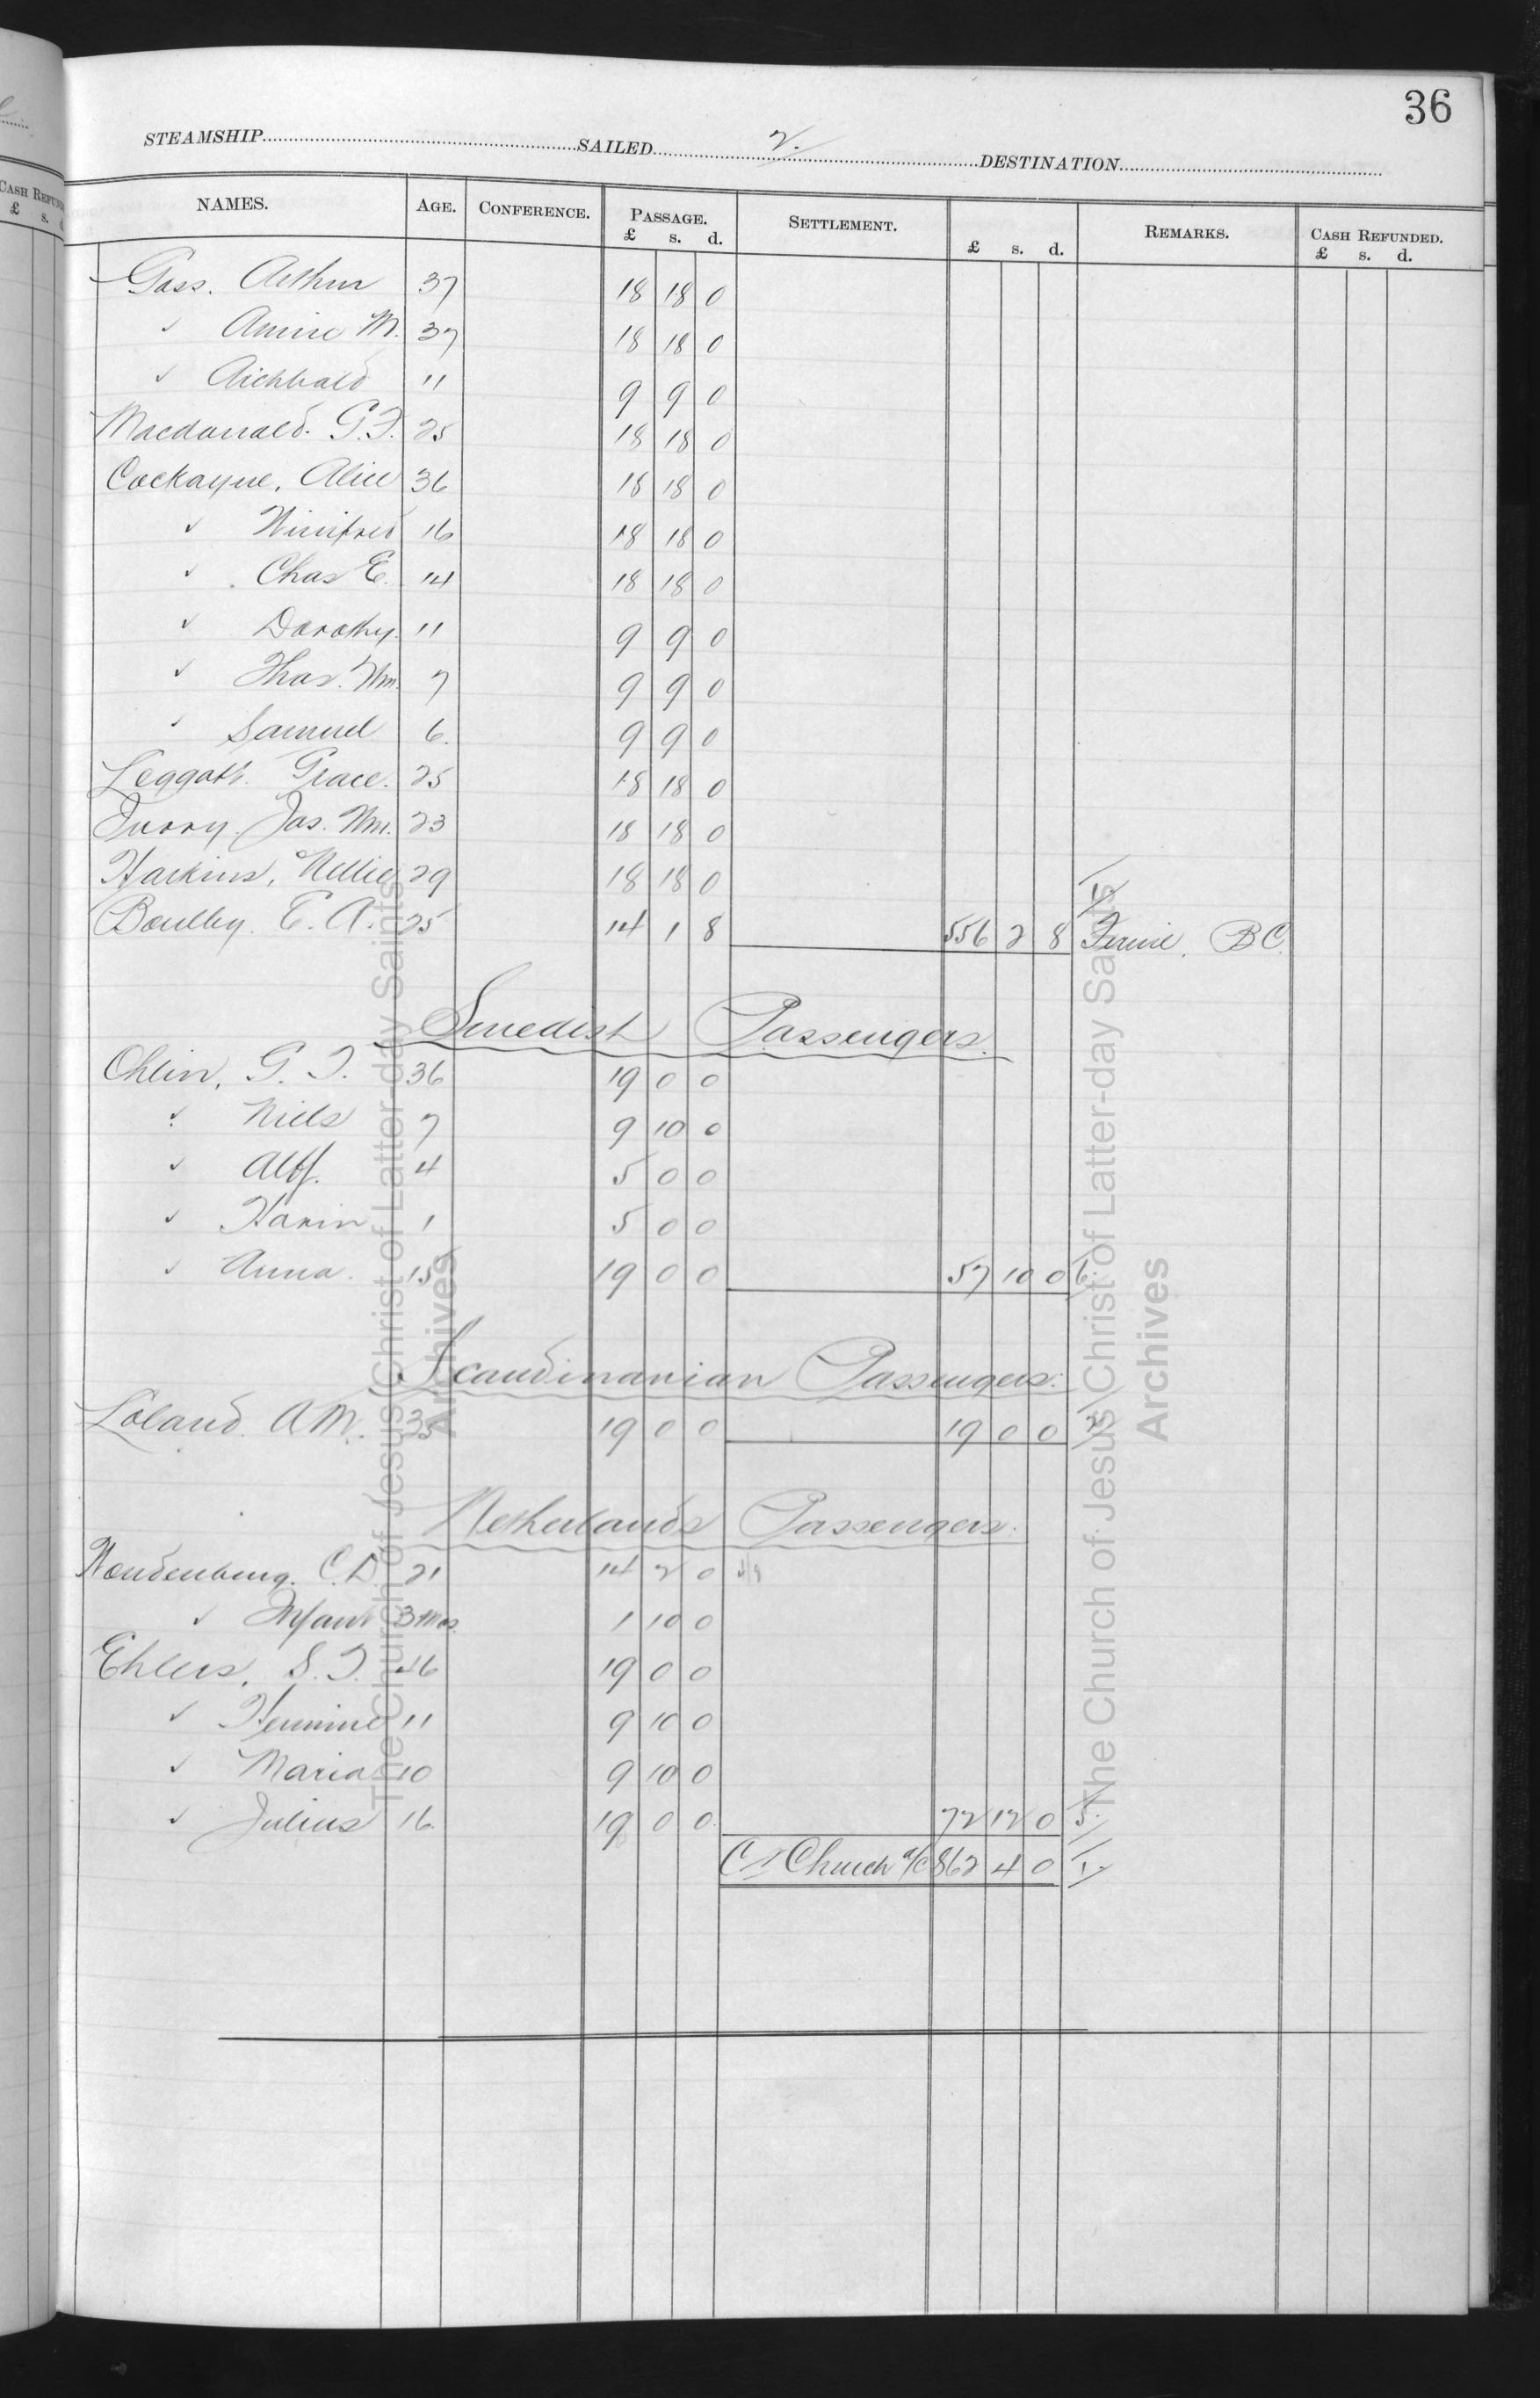 36
STEAMSHIP SAILED 2. DESTINATION
NAMES. AGE. CONFERENCE. PASSAGE. £ s. d. SETTLEMENT. £ s. d. REMARKS. CASH REFUNDED. £ s. d.
Gass. Arthur 37 18 18 0
" Annie M. 37 18 18 0
" Archbald 11 9 9 0
Macdonald. G.F. 25 18 18 0
Cockayne, Alice 36 18 18 0
" Winifred 16 18 18 0
" Chas E. 14 18 18 0
" Dorothy. 11 9 9 0
" Thos. Wm. 7 9 9 0
" Samuel 6. 9 9 0
Leggatt. Grace. 25 18 18 0
Jas. Wm. 23 18 18 0
Harkins, Nellie 29 18 18 0
E. A. 25 14 1 8 556 2 8 Fernie. B C.
Swedish Passengers.
Ohlin, G. T. 36 19 0 0
" Niels 7 9 10 0
" Alf. 4 5 0 0
" Karin 1 5 0 0
" Anna. 15 19 0 0 57 10 0
Scandinavian Passengers.
Loland. A M. 35 19 0 0 19 0 0
Netherlands Passengers.
C. D 21 14 2 0
" Infant 3 Mos. 1 10 0
Ehlers, S. T. 46 19 0 0
" Hermine 11 9 10 0
" Maria 10 9 10 0
" Julius 16. 19 0 0 72 12 0 5.
Cr Church a/c 862 4 0
The Church of Jesus Christ of Latter-day Saints
Archives
The Church of Jesus Christ of Latter-day Saints
Archives
CASH REFUND
£ s. d